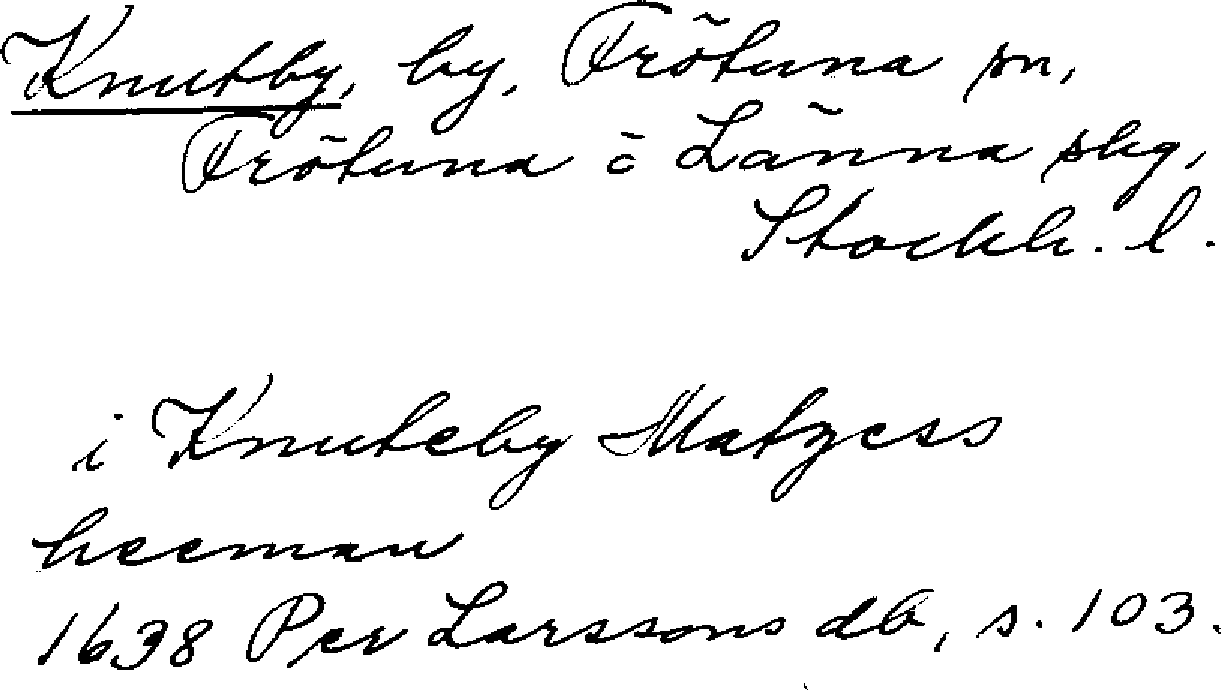 Knutby, by, Frötuna sn,
Frötuna o Länna skg,
Stockh. l.
i Knuteby Matzess
heeman
1638 Per Larssons db, s. 103.